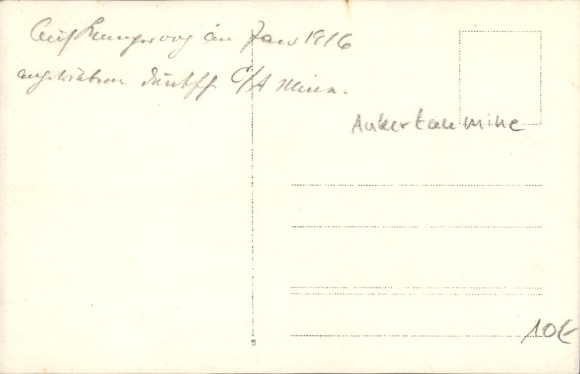 Auf Langeoog im Jan 1916
angetrieben deutsch C/A Mine.
Ankertaumine
10€